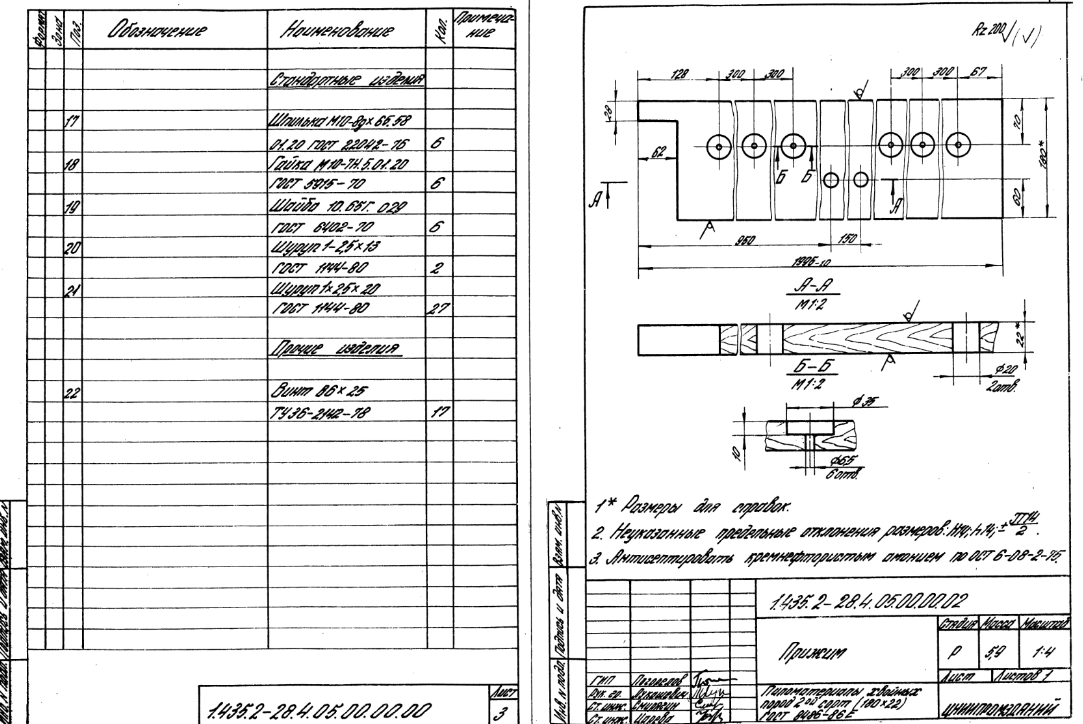 Формат
Зона
Поз.
Обозначение
Наименование
Кол.
Примеча-
ние
Стандартные изделия
17 Шпилька М10-8gх65.58
01.20 ГОСТ 22042-76 6
18 Гайка М10-7Н.5.01.20
ГОСТ 5915-70 6
19 Шайба 10.65Г. 029
ГОСТ 6402-70 6
20 Шуруп 1-2,5×13
ГОСТ 1144-80 2
21 Шуруп 1×2,5×20
ГОСТ 1144-80 27
Прочие изделия
22 Винт В6×25
ТУ36-2142-78 17
1.435.2-28.4.05.00.00.00
Лист
3
Rz 200 (√)
128 300 300 300 300 67
28
62
70
180*
60
Б Б
А А
960 150
1996-10
А-А
М1:2
22*
ф20
2отв.
Б-Б
М1:2
ф35
10
ф6,5
6отв.
1* Размеры для справок.
2. Неуказанные предельные отклонения размеров: Н14; h14; ± JT14/2.
3. Антисептировать кремнефтористым амонием по ОСТ 6-08-2-75.
Взам. инв.N
Подпись и дата
Инв. N подл.
1.435.2-28.4.05.00.00.02
Прижим
Стадия Масса Масштаб
Р 5,9 1:4
Лист Листов 1
ГИП
Рук. гр.
Ст. инж.
Ст. инж.
Пиломатериалы хвойных
пород 2ой сорт (180×22)
ГОСТ 8486-86Е